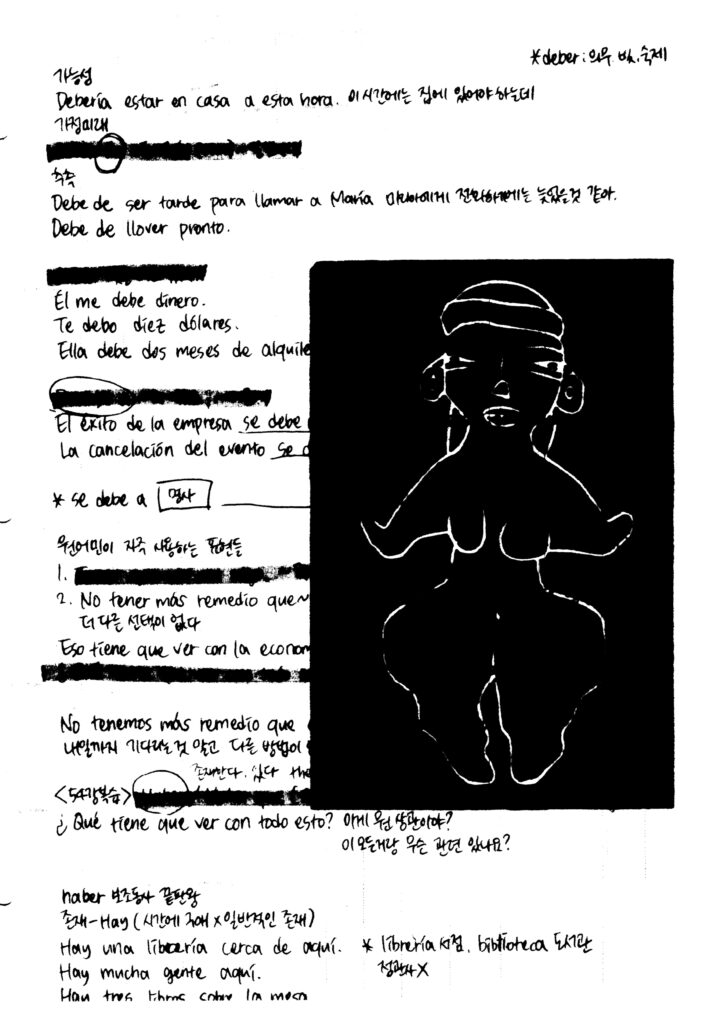 *deber : 의무, 빚, 숙제
가능성
Debería estar en casa a esta hora. 이 시간에는 집에 있어야 하는데
가정미래
추측
Debe de ser tarde para llamar a María 마리아에게 전화하기에는 늦었을것 같아.
Debe de llover pronto.
Él me debe dinero.
Te debo diez dólares.
Ella debe dos meses de alquile
El éxito de la empresa se debe
La cancelación del evento se d
* se debe a 명사
원어민이 자주 사용하는 표현들
1.
2. No tener más remedio que~
더 다른 선택이 없다
Eso tiene que ver con la econom
No tenemos más remedio que
내일까지 기다리는것 말고 다른 방법이
존재한다. 있다 the
<54강복습>
¿Qué tiene que ver con todo esto? 이게 뭔 상관이야?
이 모든거랑 무슨 관련 있나요?
haber 보조동사 끝판왕
존재-Hay (시간에 구애 x 일반적인 존재)
Hay una librería cerca de aquí. * librería 서점, biblioteca 도서관
Hay mucha gente aquí. 정관사 X
Hay tres libros sobre la mesa